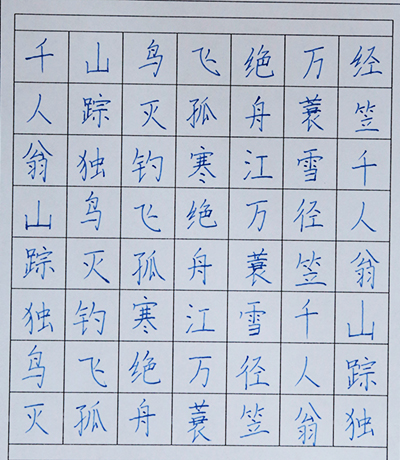 千山鸟飞绝万经
人踪灭孤舟蓑笠
翁独钓寒江雪千
山鸟飞绝万径人
踪灭孤舟蓑笠翁
独钓寒江雪千山
鸟飞绝万径人踪
灭孤舟蓑笠翁独